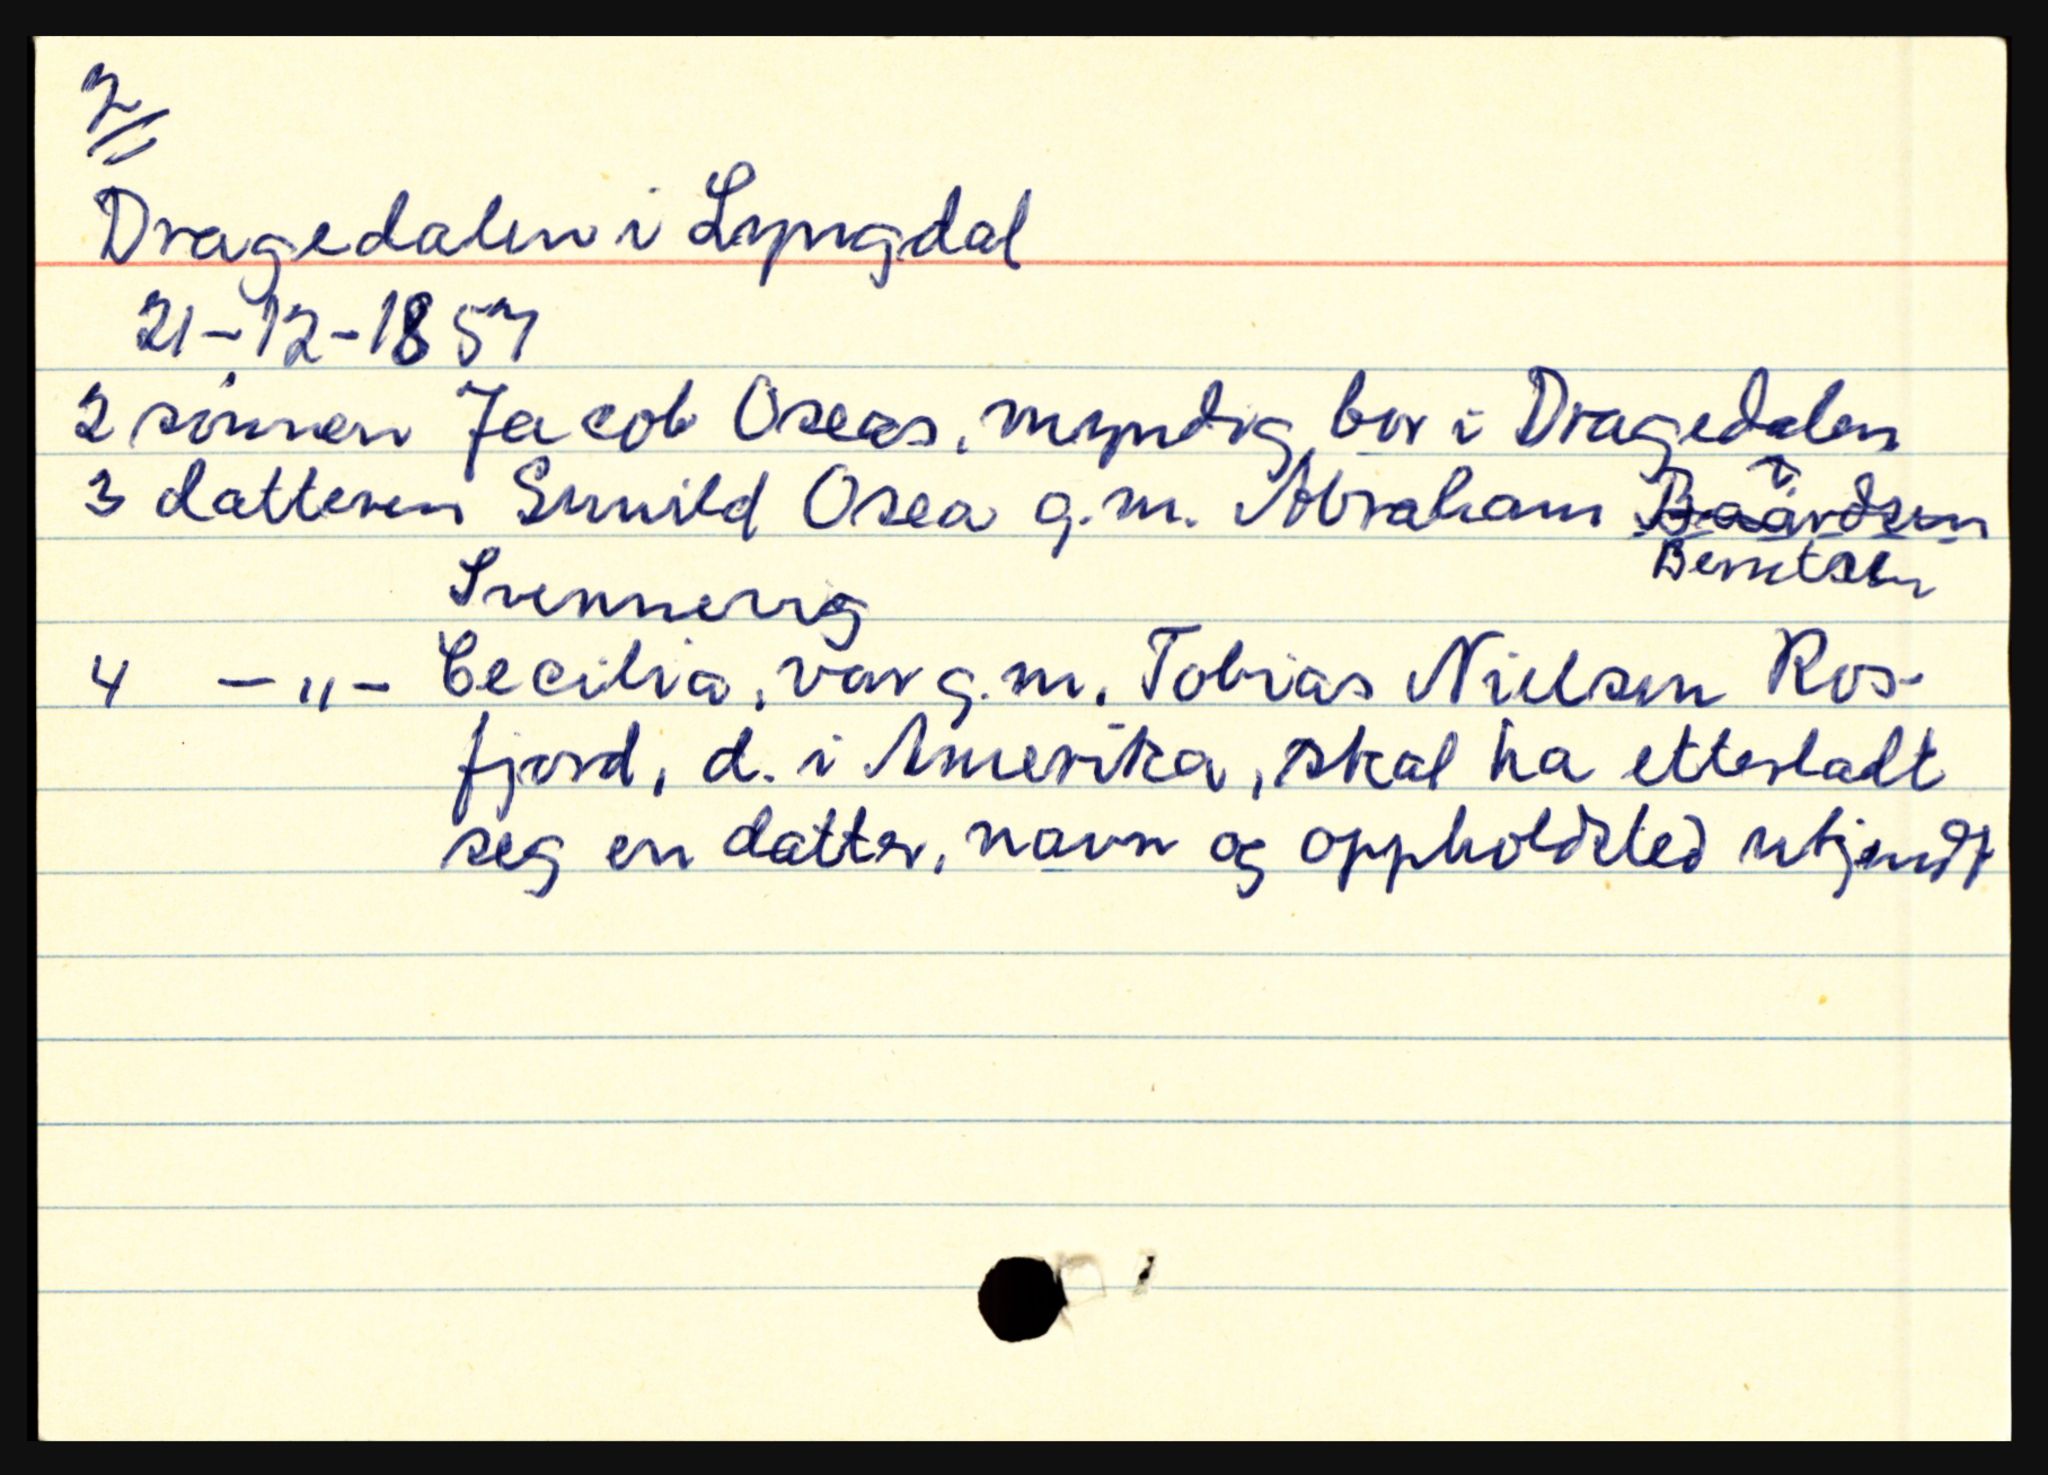 2
Dragedalen i Lyngdal
21-12-1857
2 sönnen Jacob Oseas, myndig, bor i Dragedalen
3 datteren Sunild Osea g.m. Abraham Baardsen
Berntsen
i Svennevig
4 -"- Cecilia, var g.m. Tobias Nielsen Ros-
fjord, d. i Amerika, skal ha etterladt
seg en datter, navn og oppholdsted ukjendt